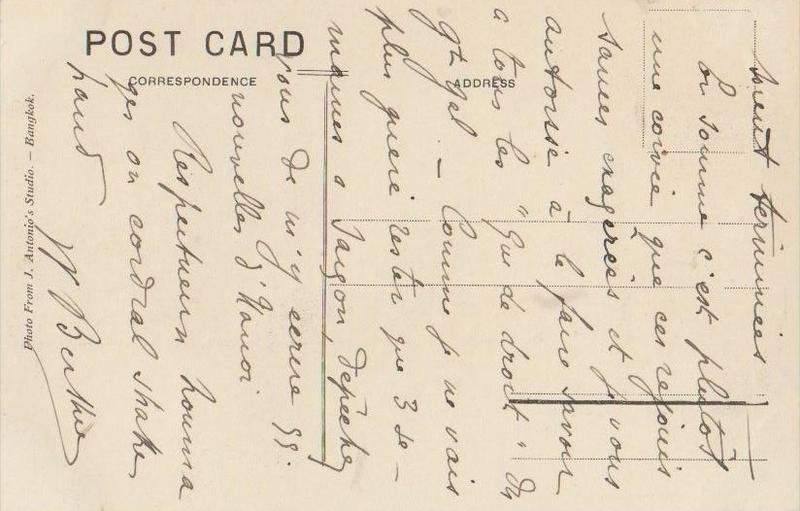 POST CARD
CORRESPONDENCE
ADDRESS
Photo From J. Antonio's Studio. — Bangkok.
soient terminées
En somme c'est plutôt
une corvée que ces rejouis
sances exagerées et je vous
autorise à le faire savoir
a tous les "Gus de droit" du
Gt Gal. — Comme je ne vais
plus guere rester que 3 se-
maines a Saigon, depechez
vous de m'y ecrire qq.
nouvelles d'Hanoi.
Respectueux homma
ges ou cordial shake
hand